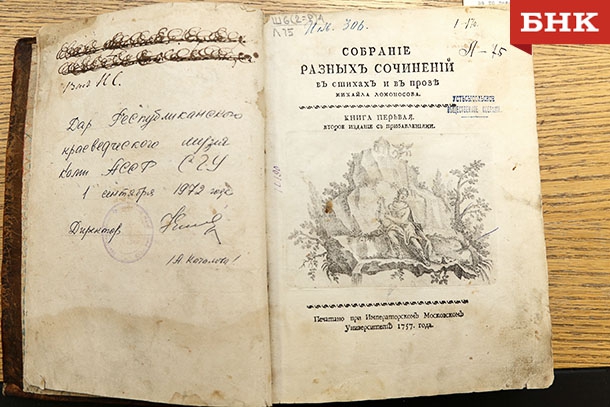 БНК
Дар Республиканского
краеведческого музея
Коми АССР СГУ
1 сентября 1972 года
Директор
Ш6(2=Р)1
Л75
Инв. 306.
Л-75
СОБРАНІЕ
РАЗНЫХЪ СОЧИНЕНІЙ
ВЪ СТИХАХЪ И ВЪ ПРОЗѢ
МИХАЙЛА ЛОМОНОСОВА.
КНИГА ПЕРЬВАЯ.
ВТОРОЕ ИЗДАНІЕ СЪ ПРИБАВЛЕНІЯМИ.
Печатано при Императорскомъ Московскомъ
Университетѣ 1757. года.